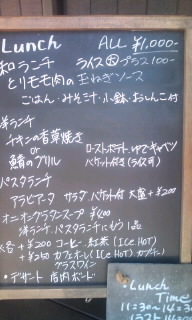 Lunch ALL ¥1,000-
和ランチ ライス大プラス100-
とリモモ肉の玉ねぎソース
ごはん・みそ汁・小鉢・おしんこ付
洋ランチ
チキンの香草焼き
or
鯖のグリル
ローストポテト、ゆでキャベツ
バゲット付き(ライス可)
パスタランチ
アラビアータ サラダ バゲット付 大盛+¥200
オニオングラタンスープ ¥400
洋ランチ、パスタランチにもう1品
各 +¥200 コーヒー、紅茶(ICE, HOT)
+¥250 カフェオレ(ICE HOT)
グラスワイン
・デザート 店内ボード
Lunch
Time
11:30~14:30